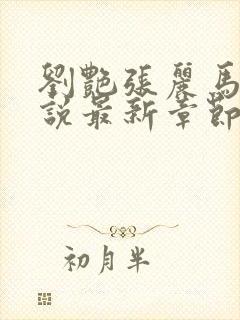 劉艷張麗馬
說最新章節
初月半